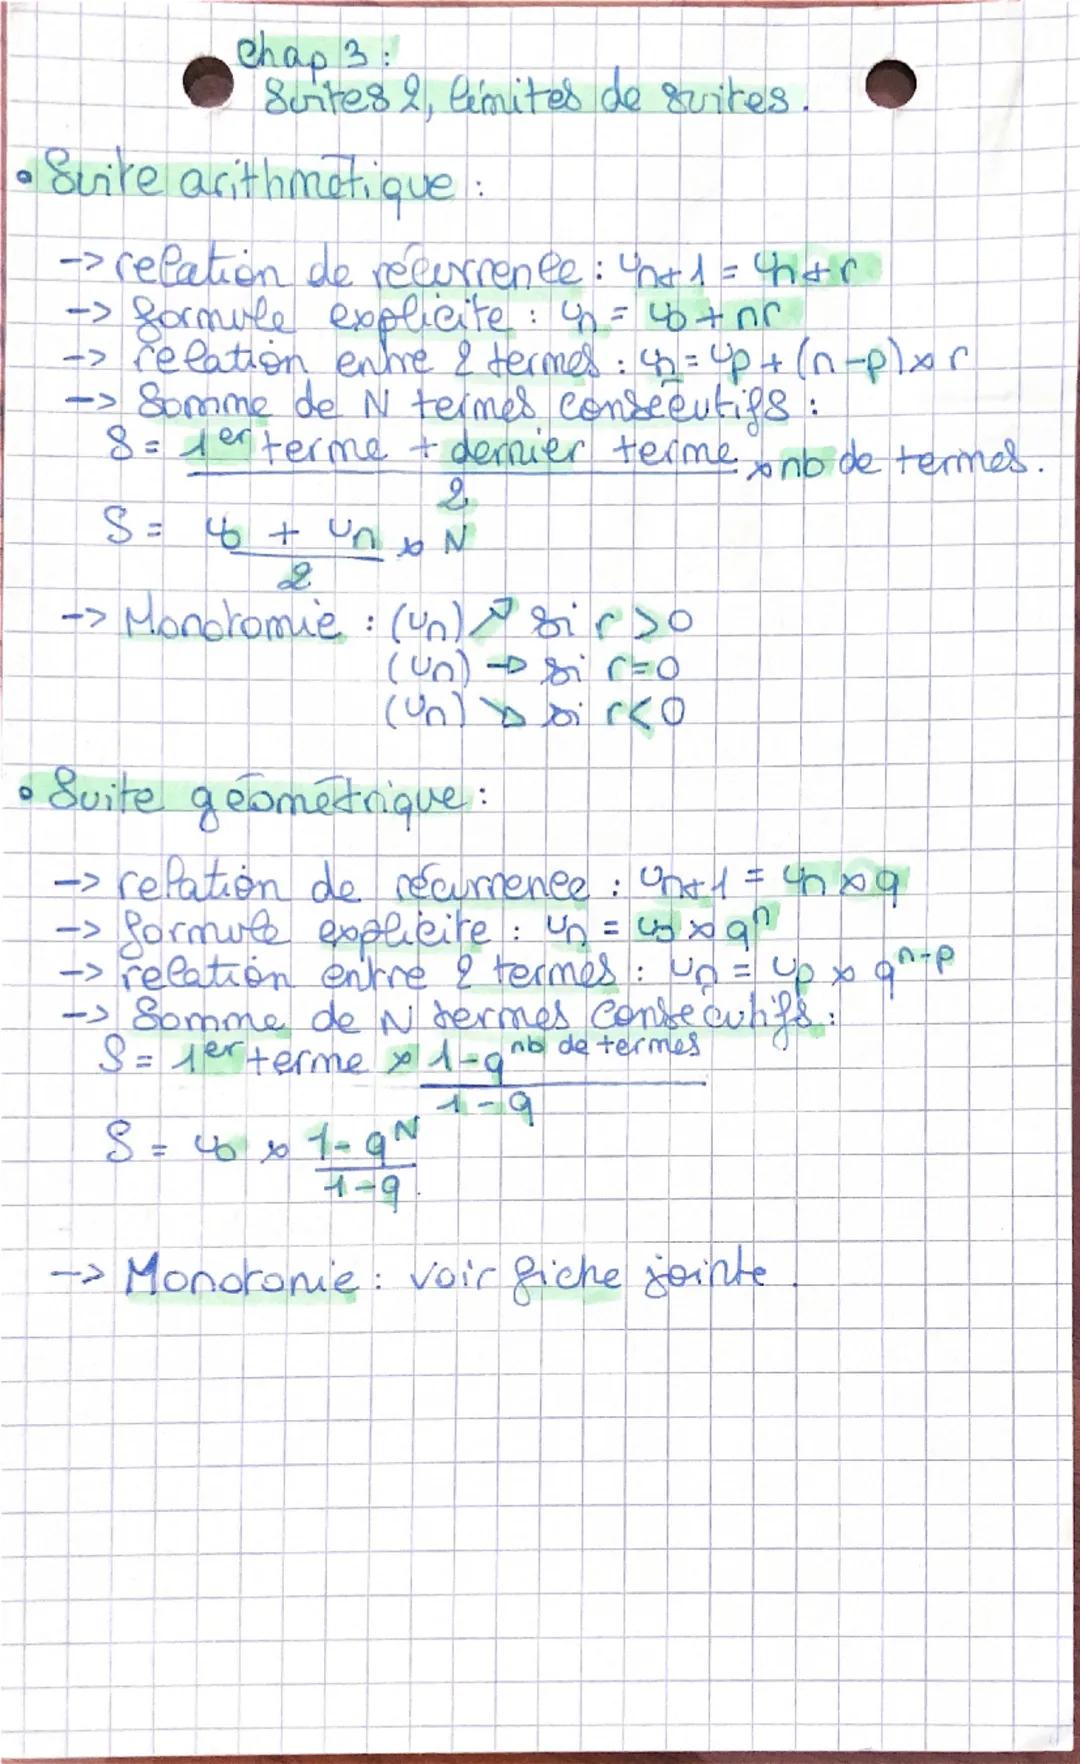 Chap 3 :
Suites 2, limites de suites.
• Suite arithmétique :
-> relation de récurrence : un+1 = un + r
-> formule explicite : un = u0 + nr
-> relation entre 2 termes : un = up + (n-p) × r
-> Somme de N termes consécutifs :
S = 1er terme + dernier terme × nb de termes.
2
S = u0 + un × N
2
-> Monotomie : (un) ↗ si r > 0
(un) → si r = 0
(un) ↘ si r < 0
• Suite géométrique :
-> relation de récurrence : un+1 = un × q
-> formule explicite : un = u0 × qⁿ
-> relation entre 2 termes : un = up × qⁿ⁻ᵖ
-> Somme de N termes consécutifs :
S = 1er terme × 1-q nb de termes
1-q
S = u0 × 1-qᴺ
1-q.
-> Monotonie : voir fiche jointe.